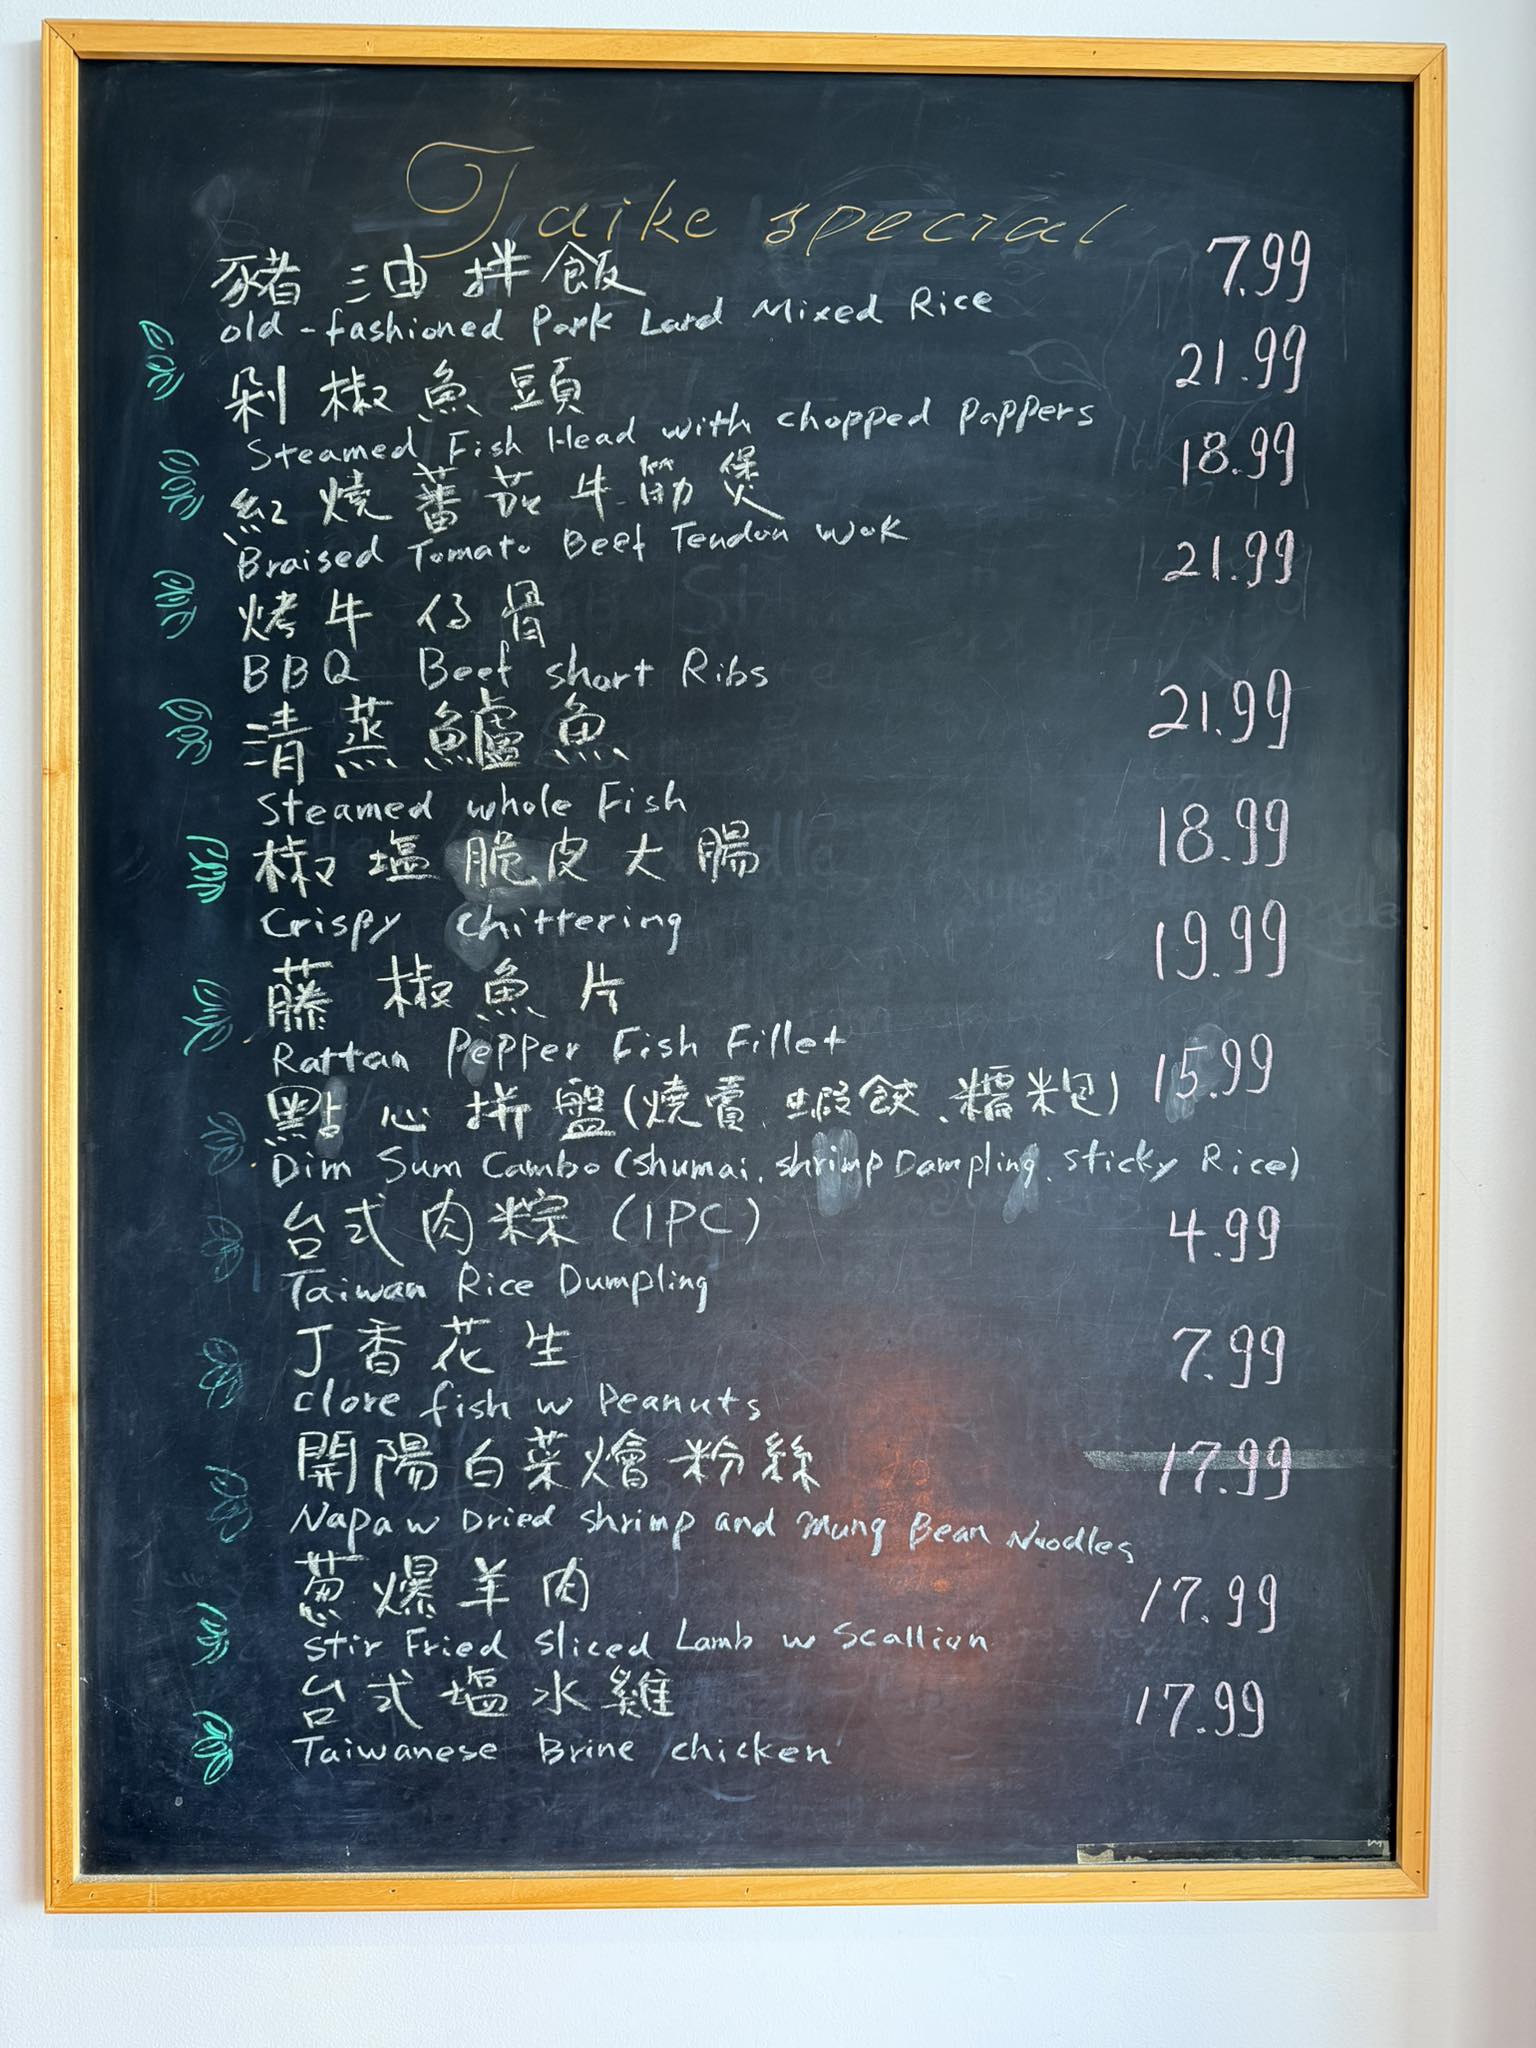 Taike special
豬油拌飯 7.99
old-fashioned Pork Lard Mixed Rice
剁椒魚頭 21.99
Steamed Fish Head with chopped Pappers
紅燒蕃茄牛筋煲 18.99
Braised Tomato Beef Tendon Wok
烤牛仔骨 21.99
BBQ Beef short Ribs
清蒸鱸魚 21.99
Steamed whole Fish
椒塩脆皮大腸 18.99
Crispy chittering
藤椒魚片 19.99
Rattan Pepper Fish Fillet
點心拼盤(燒賣.蝦餃.糯米包) 15.99
Dim Sum Combo (Shumai. shrimp Dampling. sticky Rice)
台式肉粽 (1PC) 4.99
Taiwan Rice Dumpling
丁香花生 7.99
Clore fish w Peanuts
開陽白菜燴粉絲 17.99
Napa w Dried shrimp and Mung Bean Noodles
葱爆羊肉 17.99
Stir Fried Sliced Lamb w Scallion
台式塩水雞 17.99
Taiwanese Brine chicken